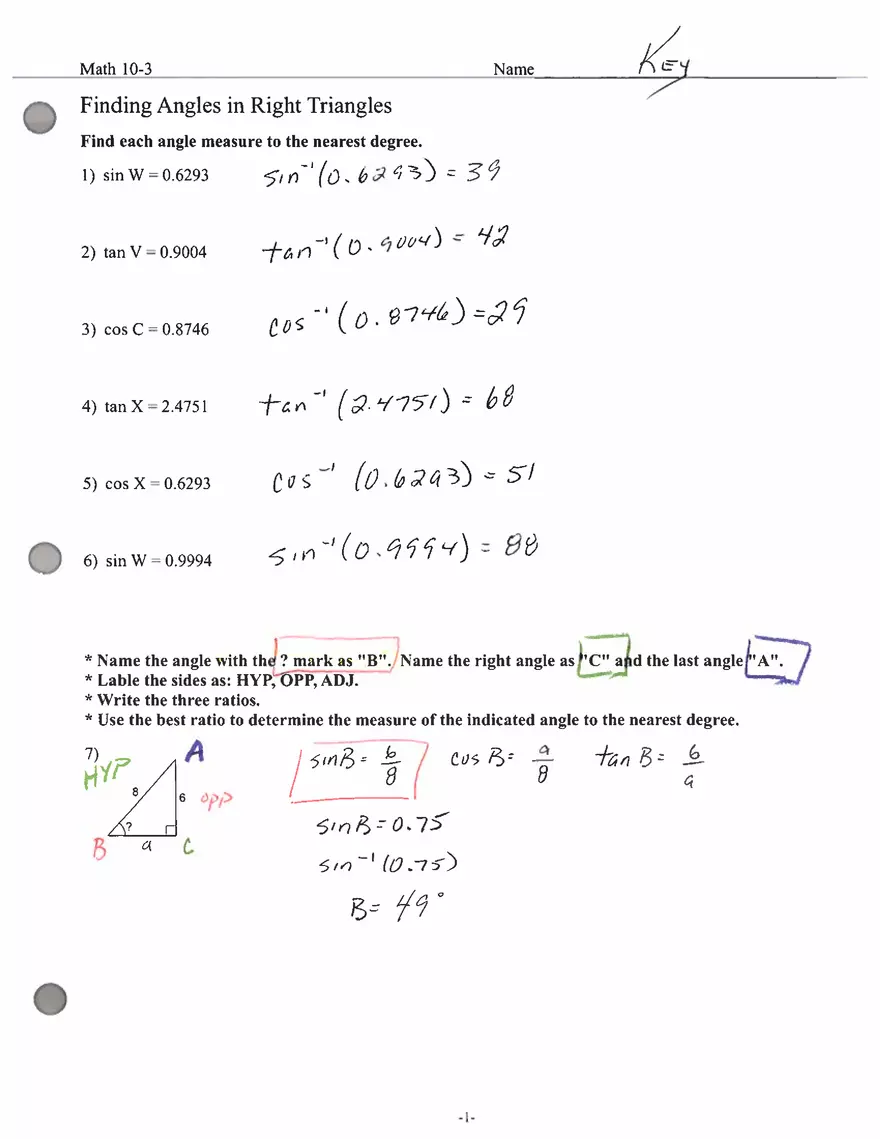 Math 10-3 Name KEY
Finding Angles in Right Triangles
Find each angle measure to the nearest degree.
1) sin W = 0.6293 sin⁻¹(0.6293) = 39
2) tan V = 0.9004 tan⁻¹(0.9004) = 42
3) cos C = 0.8746 cos⁻¹(0.8746) = 29
4) tan X = 2.4751 tan⁻¹(2.4751) = 68
5) cos X = 0.6293 cos⁻¹(0.6293) = 51
6) sin W = 0.9994 sin⁻¹(0.9994) = 88
* Name the angle with the ? mark as "B". Name the right angle as "C" and the last angle "A".
* Lable the sides as: HYP, OPP, ADJ.
* Write the three ratios.
* Use the best ratio to determine the measure of the indicated angle to the nearest degree.
7) A sinB = 6/8 cos B = a/8 tan B = 6/a
HYP
8 6 opp
? sinB = 0.75
B a C
sin⁻¹(0.75)
B = 49°
-1-